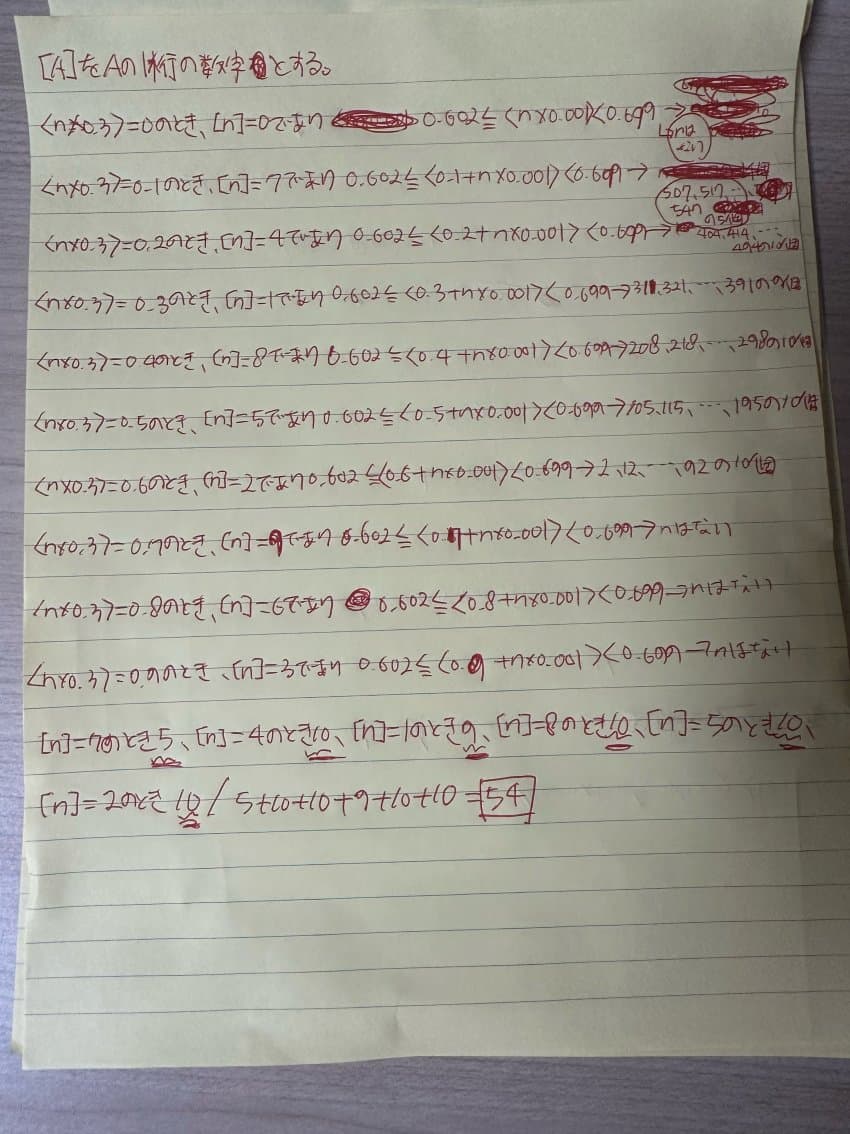 [A]をAの1桁の数字とする。
<n×0.3>=0のとき、[n]=0であり 0.602≦<n×0.001><0.699→
nは
ない
<n×0.3>=0.1のとき、[n]=7であり 0.602≦<0.1+n×0.001><0.699→
507,517,…,
547
の5個
<n×0.3>=0.2のとき、[n]=4であり 0.602≦<0.2+n×0.001><0.699→404,414,…
494の10個
<n×0.3>=0.3のとき、[n]=1であり 0.602≦<0.3+n×0.001><0.699→311,321,…,391の9個
<n×0.3>=0.4のとき、[n]=8であり 0.602≦<0.4+n×0.001><0.699→208,218,…,298の10個
<n×0.3>=0.5のとき、[n]=5であり 0.602≦<0.5+n×0.001><0.699→105,115,…,195の10個
<n×0.3>=0.6のとき、[n]=2であり 0.602≦<0.6+n×0.001><0.699→2,12,…,92の10個
<n×0.3>=0.7のとき、[n]=9であり 0.602≦<0.7+n×0.001><0.699→nはない
<n×0.3>=0.8のとき、[n]=6であり 0.602≦<0.8+n×0.001><0.699→nはない
<n×0.3>=0.9のとき、[n]=3であり 0.602≦<0.9+n×0.001><0.699→nはない
[n]=7のとき5、[n]=4のとき10、[n]=1のとき9、[n]=8のとき10、[n]=5のとき10、
[n]=2のとき10/5+10+10+9+10+10=54